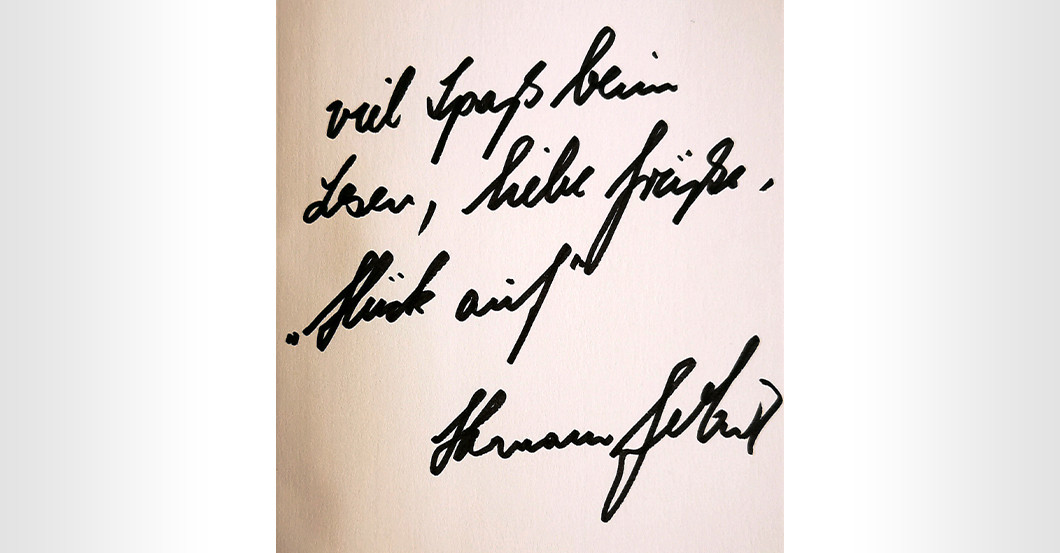 viel Spaß beim
Lesen, liebe Grüße,
„Glück auf"
Hermann